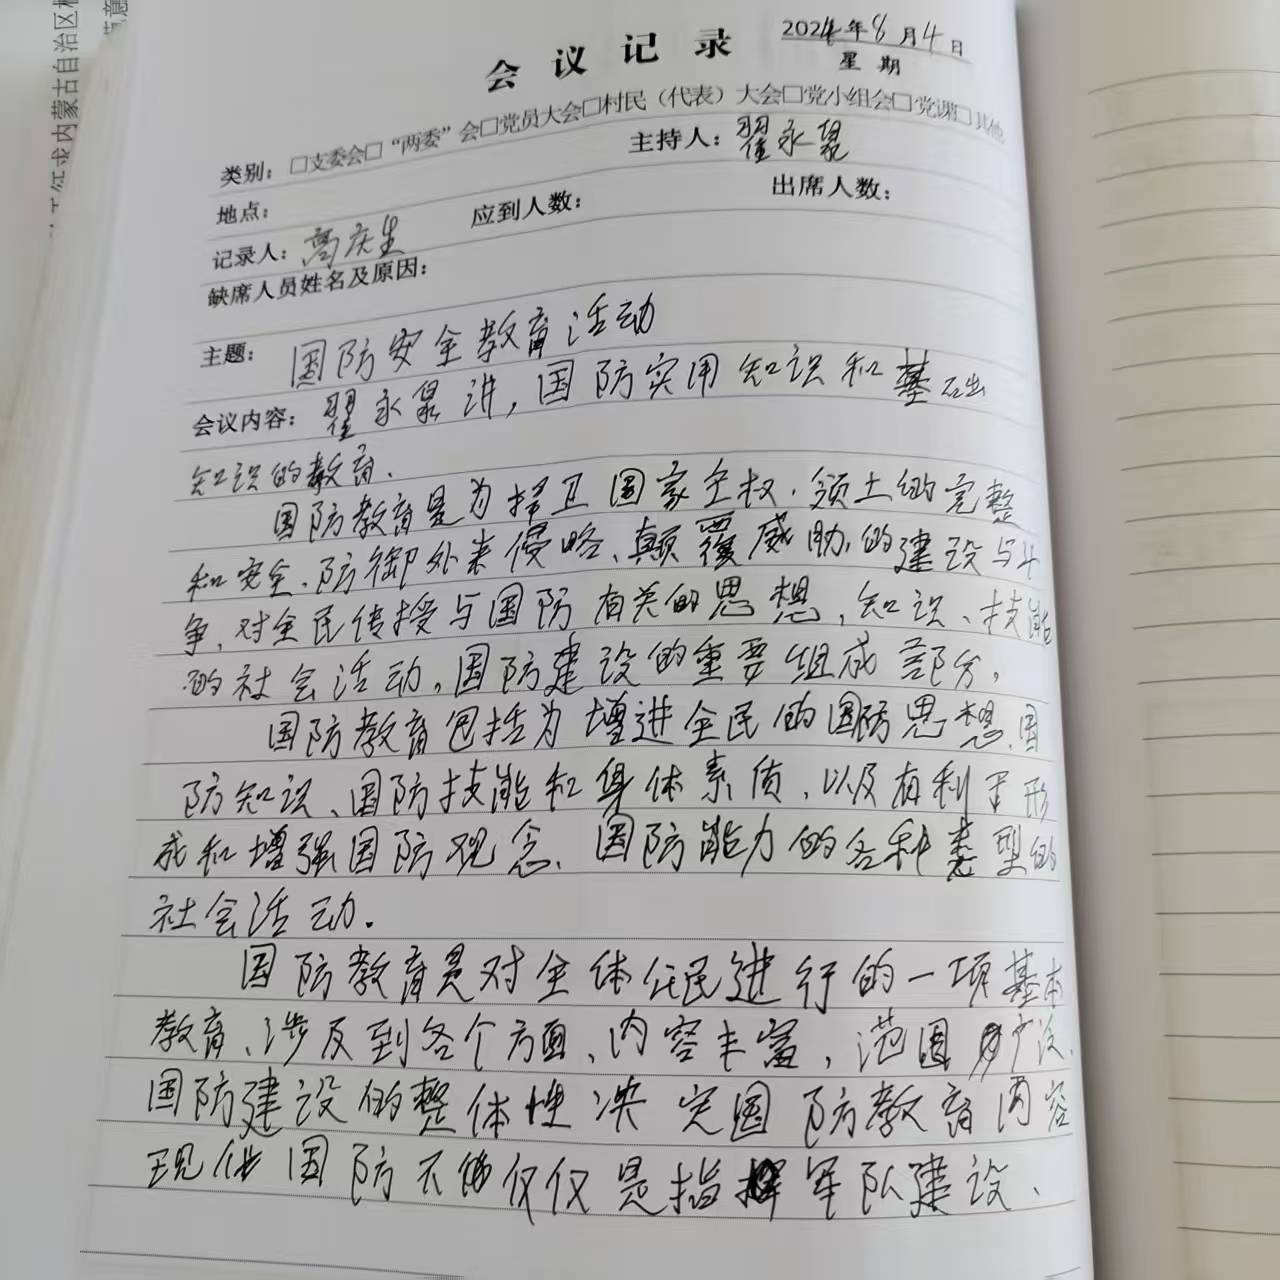 会议记录 2024年8月4日
星期
类别：□支委会□“两委”会□党员大会□村民（代表）大会□党小组会□党课□其他
地点： 主持人：翟永
记录人：高庆生 应到人数： 出席人数：
缺席人员姓名及原因：
主题： 国防安全教育活动
会议内容： 翟永讲，国防实用知识和基础
知识的教育.
国防教育是为捍卫国家主权、领土的完整
和安全、防御外来侵略、颠覆威胁,的建设与斗
争，对全民传授与国防有关的思想，知识、技能
的社会活动，国防建设的重要组成部分，
国防教育包括为增进全民的国防思想、国
防知识、国防技能和身体素质、以及有利于形
成和增强国防观念、国防能力的各种类型的
社会活动.
国防教育是对全体公民进行的一项基本
教育、涉及到各个方面、内容丰富，范围广泛、
国防建设的整体性决定国防教育内容
现代国防不仅仅是指军队建设、